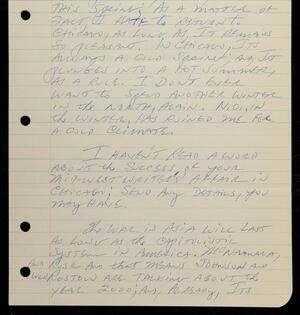 This Spring! As a matter of
fact, I hate to return to
Chicago, as long as, it remains
so pleasant. In Chicago, its
always a cold spring; and, it
plunges into a hot summer,
as a rule. I don't even
want to spend another winter
in the north, again. N.O., in
the winter, has ruined me for
a cold climate.
I haven't read a word
about the success of your
Mid-West Writers' affair in
Chicago; send any details, you
may have.
The war in Asia will last
as long as the capitolistic
system in America. McNamara,
Rusk and that means Johnson and
Rostow are talking about the
year 2000; and, probably, its